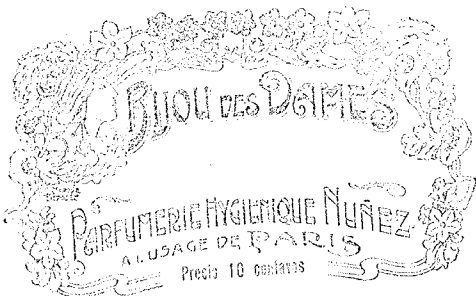 BIJOU DES DAMES
PARFUMERIE HYGIENIQUE NUÑEZ
A L'USAGE DE PARIS
Precio 10 centavos